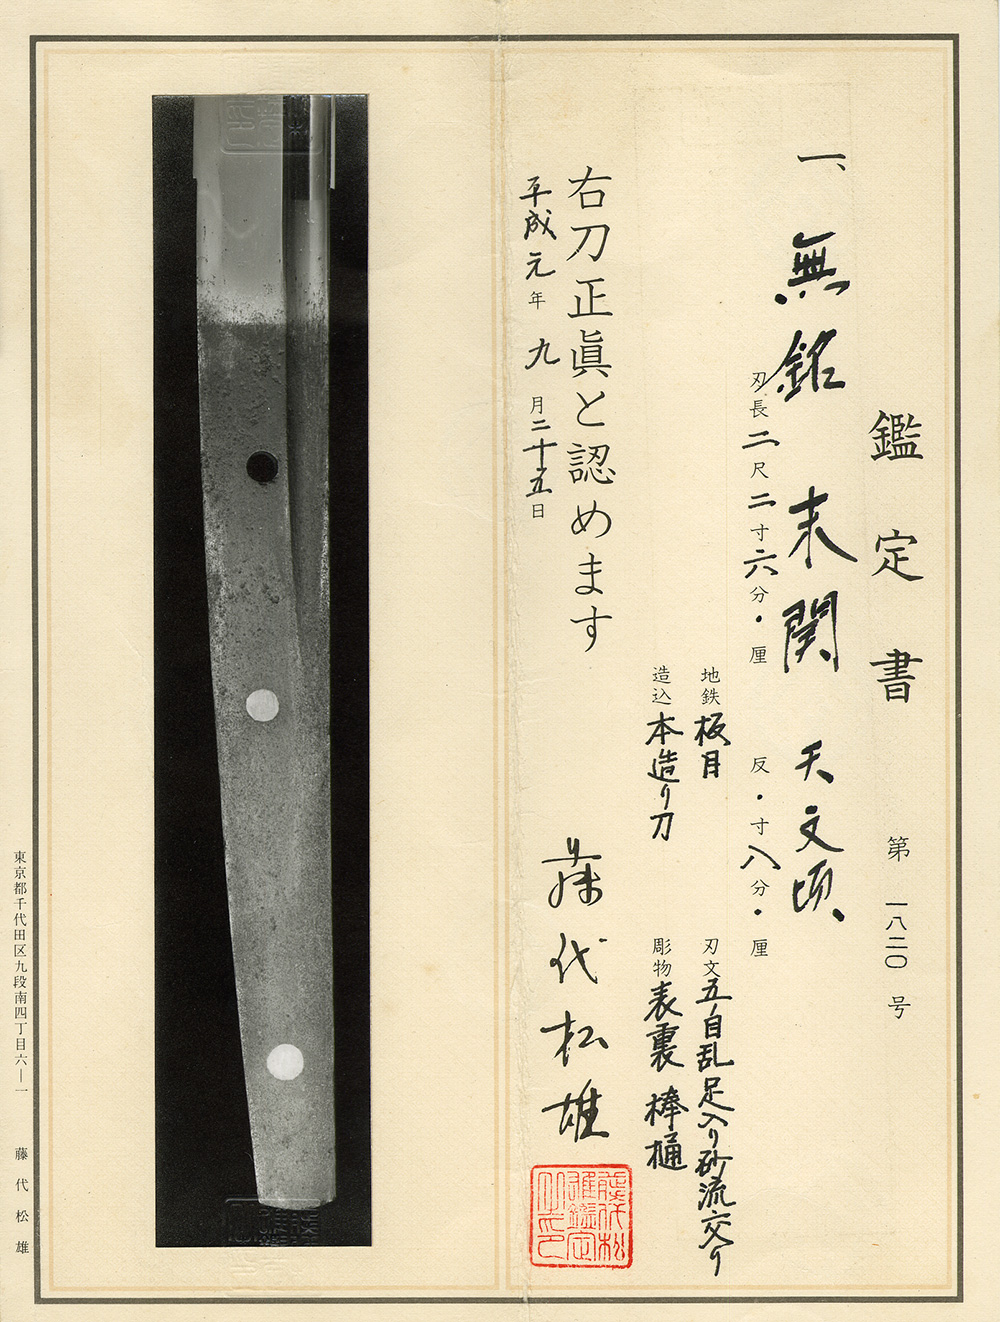 鑑定書
第一八二〇号
一、無銘 末関 天文頃、
刃長二尺二寸六分・厘 反・寸八分・厘
地鉄板目 刃文五ノ目乱足入り砂流交り
造込本造り刀 彫物表裏棒樋
右刀正眞と認めます
平成元年九月二十五日
藤代松雄
東京都千代田区九段南四丁目六—一 藤代松雄